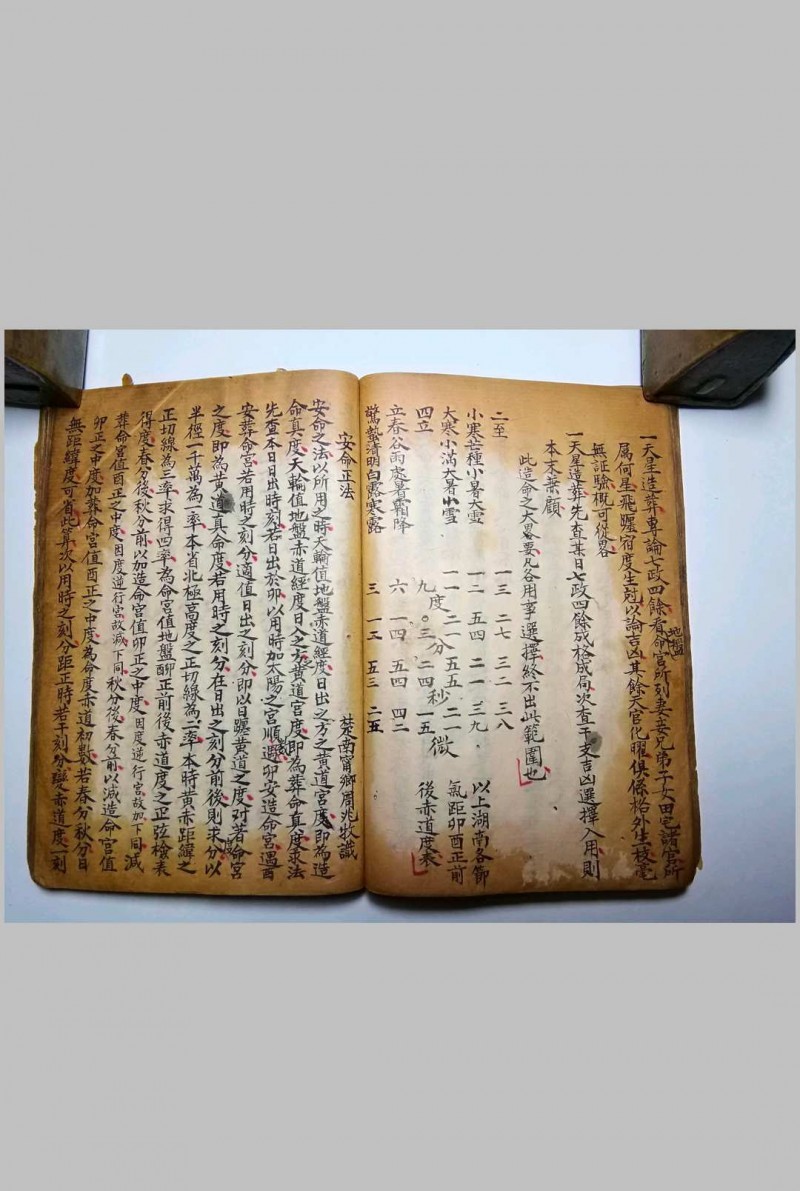 一天星造葬專論七政四餘看命宮所列妻妾兄弟子女田宅諸宮所
地盤
属何星飛躔宿度生尅以論吉凶其餘天官化曜俱條格外生枝毫
無証驗概可從畧
一天星造葬先查某日七政四餘成格成局次查干支吉凶選擇入用則
本末兼顧
此造命之大畧要凡各用事選擇終不出此範圍也
二至 一三 二七 三二 三八
小寒芒種小暑大雪 一二 五四 二一 三九
大寒小滿大暑小雪 一一 二一 五五 二一
四立 九度 〇三分 二四秒 一五微
立春谷雨處暑霜降 六 一四 五四 四二
驚蟄清明白露寒露 三 一三 五三 二五
以上湖南各節
氣距卯酉正前
後赤道度表
安命正法 楚南甯鄉周兆牧識
安命之法以所用之時天輪值地盤赤道經度日出之方之黃道宮度即為造
命真度天輪值地盤赤道經度日入之方黃道宮度即為葬命真度求法
先查本日日出時刻若日出於卯以用時加太陽之宮順遇卯安造命宮遇酉
安葬命宮若用時之刻分適值日出之刻分即以日躔黃道之度對著命宮
之度即為黃道真命度若用時之刻分在日出之刻分前後則求分以
半徑一千萬為一率本省北極高度之正切線為二率本時黃赤距緯之
正切線為三率求得四率為命宮值地盤卯正前後赤道度之正弦檢表
得度春分後秋分前以加造命宮值卯正之中度因度逆行宮故加下同減
葬命宮值酉正之中度因度逆行宮故減下同秋分後春分前以減造命宮值
卯正之中度加葬命宮值酉正之中度為命度赤道初數若春分秋分日
無距緯度可省此算次以用時之刻分距正時若干刻分變赤道度一刻